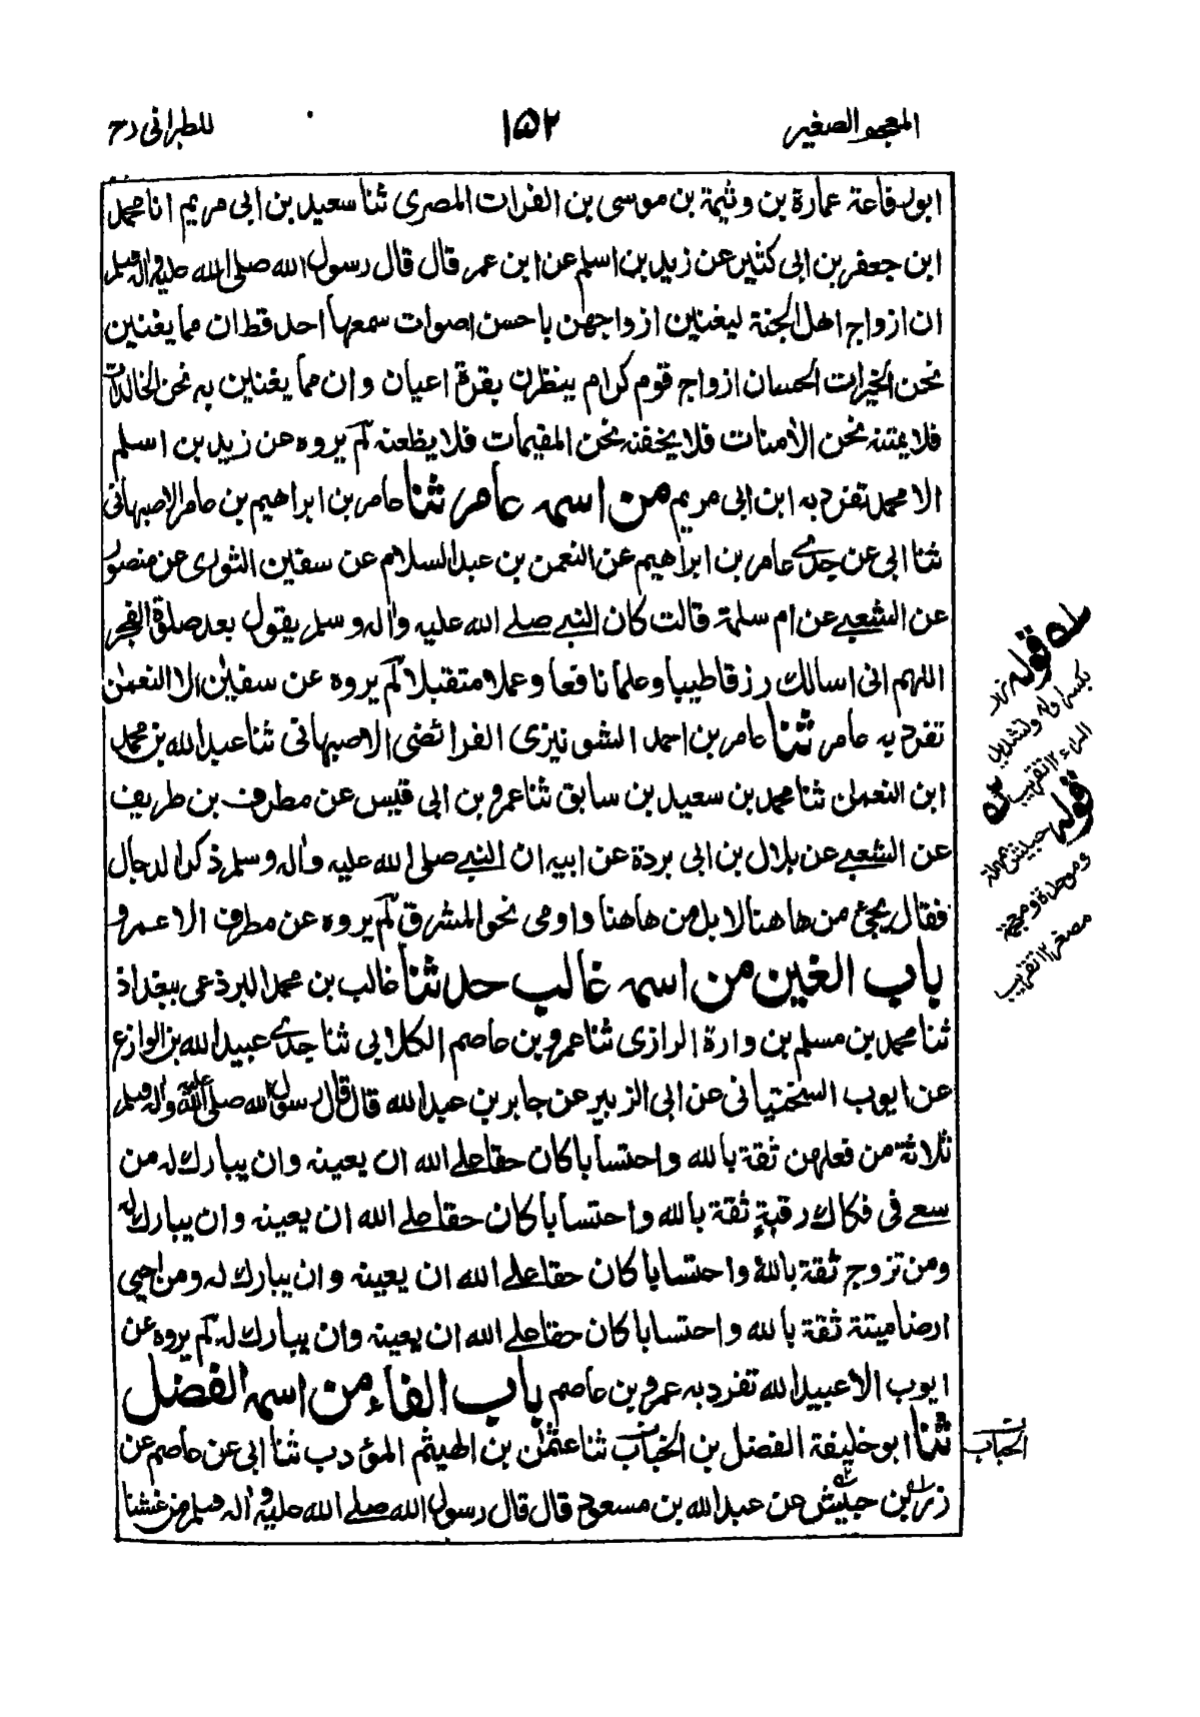 المعجم الصغير
١٥٢
للطبرانى رح
ابورفاعة عمارة بن وثيمة بن موسى بن الفرات المصرى ثنا سعيد بن ابى مريم انا محمد
ابن جعفر بن ابى كثير عن زيد بن اسلم عن ابن عمر قال قال رسول الله صلى الله عليه واله وسلم
ان ازواج اهل الجنة ليغنين ازواجهن باحسن اصوات سمعها احد قط ان مما يغنين
نحن الخيرات الحسان ازواج قوم كرام ينظرن بقرة اعيان وان مما يغنين به نحن الخالدات
فلا يمتنه نحن الامنات فلا يخفنه نحن المقيمات فلا يظعنه لم يروه عن زيد بن اسلم
الا محمد تفرد به ابن ابى مريم من اسمه عامر ثنا عامر بن ابراهيم بن عامر الاصبهانى
ثنا ابى عن جدى عامر بن ابراهيم عن النعمن بن عبد السلام عن سفين الثورى عن منصور
عن الشعبى عن ام سلمة قالت كان النبى صلى الله عليه واله وسلم يقول بعد صلوة الفجر
اللهم انى اسالك رزقا طيبا وعلما نافعا وعملا متقبلا لم يروه عن سفين الا النعمن
تفرد به عامر ثنا عامر بن احمد الشونيزى الفرائضى الاصبهانى ثنا عبد الله بن محمد
ابن النعمن ثنا محمد بن سعيد بن سابق ثنا عمرو بن ابى قيس عن مطرف بن طريف
عن الشعبى عن بلال بن ابى بردة عن ابيه ان النبى صلى الله عليه واله وسلم ذكر الدجال
فقال يجئ من هاهنا لا بل من هاهنا واومى نحو المشرق لم يروه عن مطرف الا عمرو
باب الغين من اسمه غالب حدثنا غالب بن محمد البرذعى ببغداذ
ثنا محمد بن مسلم بن وارة الرازى ثنا عمرو بن عاصم الكلابى ثنا جدى عبيد الله بن الوازع
عن ايوب السختيانى عن ابى الزبير عن جابر بن عبد الله قال قال رسول الله صلى الله عليه واله وسلم
ثلاثة من فعلهن ثقة بالله واحتسابا كان حقا على الله ان يعينه وان يبارك له من
سعى فى فكاك رقبة ثقة بالله واحتسابا كان حقا على الله ان يعينه وان يبارك له
ومن تزوج ثقة بالله واحتسابا كان حقا على الله ان يعينه وان يبارك له ومن احيى
ارضا ميتة ثقة بالله واحتسابا كان حقا على الله ان يعينه وان يبارك له لم يروه عن
ايوب الا عبيد الله تفرد به عمرو بن عاصم باب الفاء من اسمه الفضل
ثنا ابو خليفة الفضل بن الحباب ثنا عثمن بن الهيثم المؤدب ثنا ابى عن عاصم عن
زر بن حبيش عن عبد الله بن مسعود قال قال رسول الله صلى الله عليه واله وسلم من غشنا
له قوله زر
بكسر اوله وتشديد
الراء ١٢ تقريب
قوله حبيش بمهملة
وموحدة ومعجمة
مصغر ١٢ تقريب
الحباب